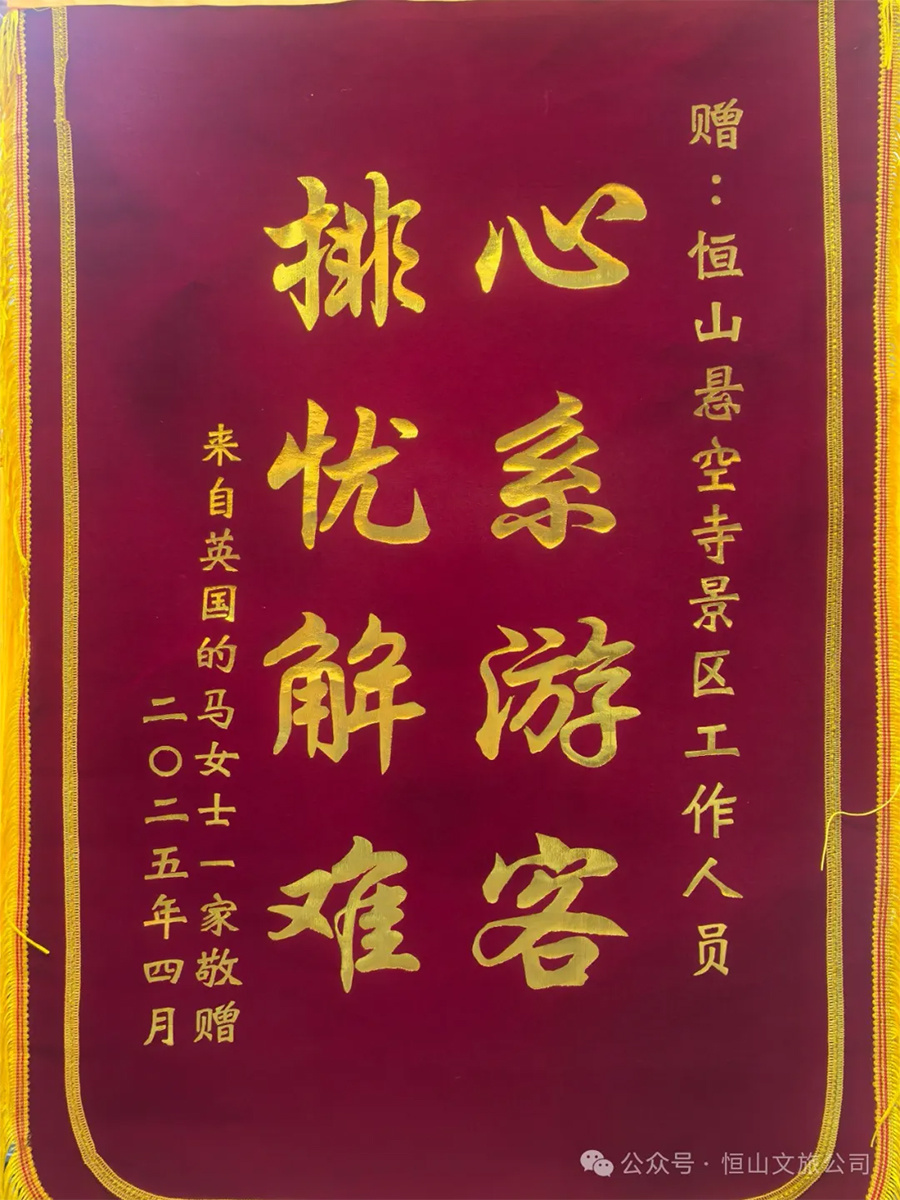 赠：恒山悬空寺景区工作人员
心系游客
排忧解难
来自英国的马女士一家敬赠
二〇二五年四月
公众号·恒山文旅公司